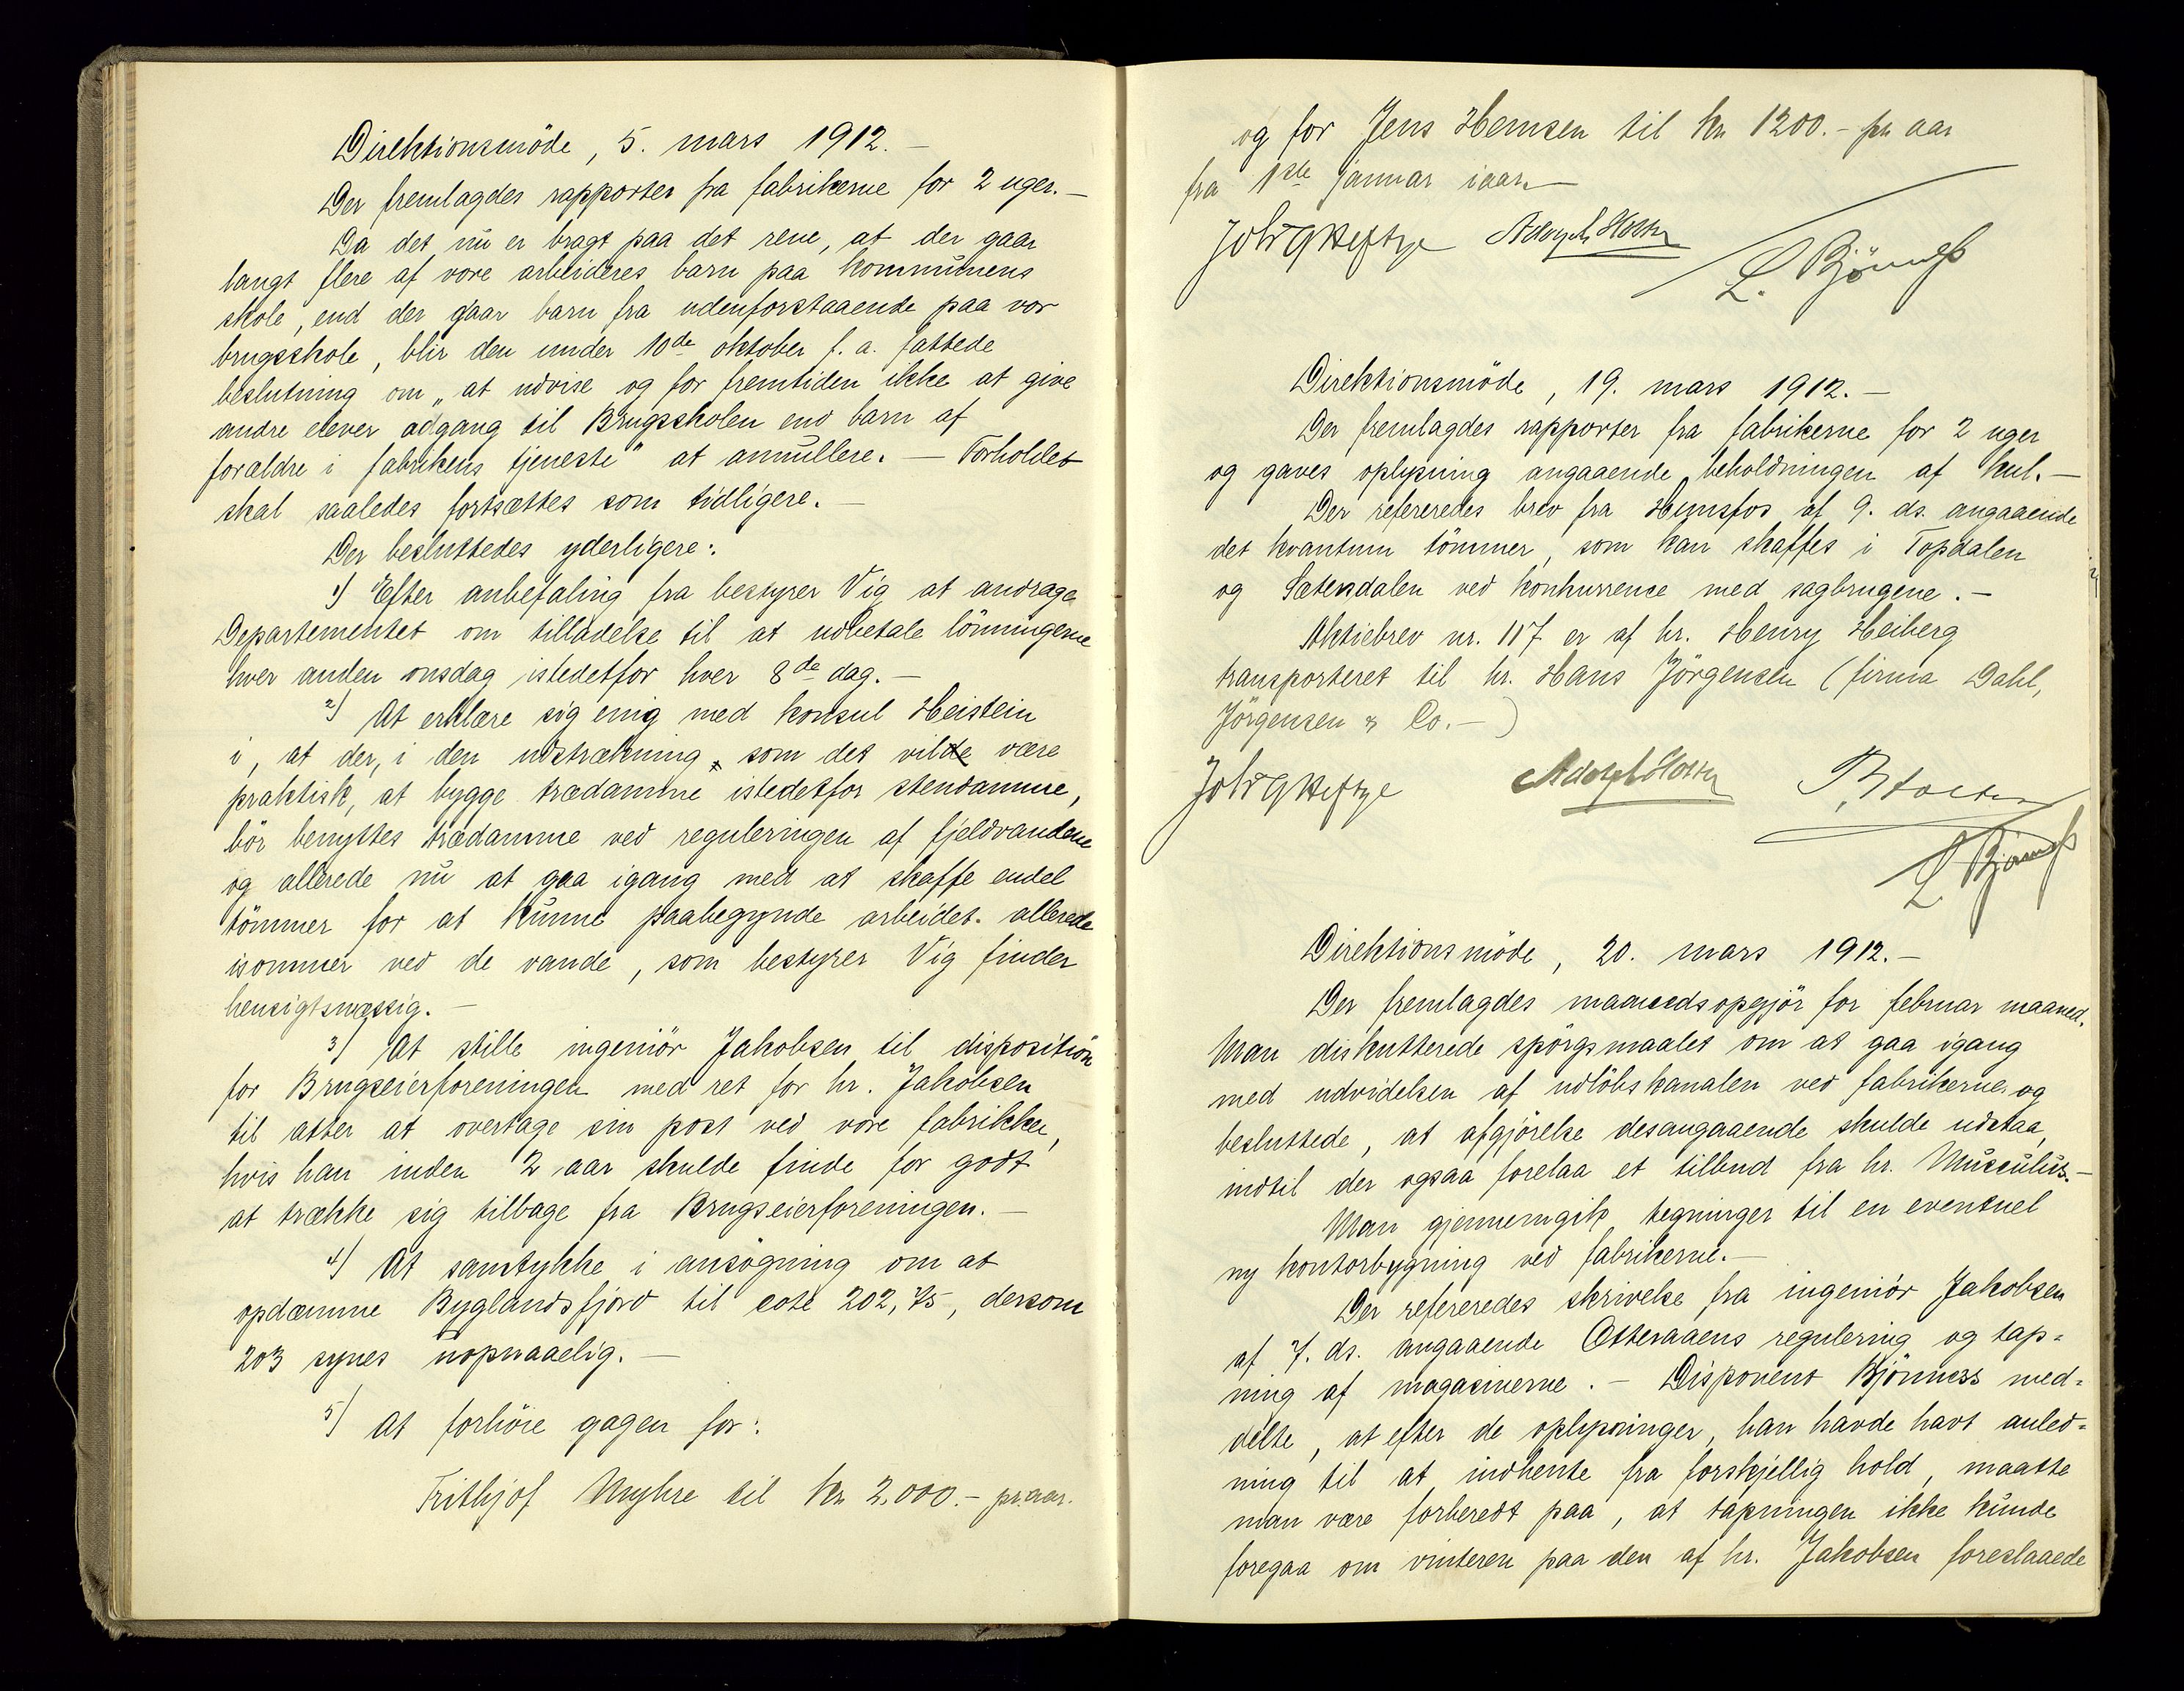 Direktionsmöde, 5. mars 1912.–
Der fremlagdes rapporter fra fabrikerne for 2 uger.–
Da det nu er bragt paa det rene, at der gaar
langt flere af vore arbeideres barn paa kommunens
skole, end der gaar barn fra udenforstaaende paa vor
brugsskole, blir den under 10de oktober f. a. fattede
beslutning om „at udvise og for fremtiden ikke at give
andre elever adgang til Brugsskolen end barn af
forældre i fabrikens tjeneste" at annullere. – Forholdet
skal saaledes fortsættes som tidligere.–
Der besluttedes yderligere:
1) Efter anbefaling fra bestyrer Vig at andrage
Departementet om tilladelse til at udbetale lönningerne
hver anden onsdag istedetfor hver 8de dag.–
2) At erklære sig enig med konsul Heistein
i, at der, i den udstrækning som det vilde være
praktisk, at bygge trædamme istedetfor stendamme,
bör benyttes trædamme ved reguleringen af fjeldvandene
og allerede nu at gaa igang med at skaffe endel
tömmer for at kunne paabegynde arbeidet allerede
isommer ved de vande, som bestyrer Vig finder
hensigtsmæssig.–
3) At stille ingeniör Jakobsen til disposition
for Brugseierforeningen med ret for hr. Jakobsen
til atter at overtage sin post ved vore fabrikker,
hvis han inden 2 aar skulde finde for godt
at trække sig tilbage fra Brugseierforeningen.–
4) At samtykke i ansögning om at
opdæmme Byglandsfjord til cote 202,75, dersom
203 synes uopnaaelig.–
5) At forhöie gagen for:
Frithjof Myhre til kr 2.000.– pr aar.
og for Jens Hemsen til kr 1200.– pr aar
fra 1ste januar iaar.–
Joh G Heftye Adolph Holth
L. Björnness
Direktionsmöde, 19. mars 1912.–
Der fremlagdes rapporter fra fabrikerne for 2 uger
og gaves oplysning angaaende beholdningen af kul.–
Der refereredes brev fra Hunsfos af 9. ds. angaaende
det kvantum tömmer, som kan skaffes i Topdalen
og Sætersdalen ved konkurrence med sagbrugene.–
Aktiebrev nr. 117 er af hr. Henry Heiberg
transporteret til hr. Hans Jörgensen (firma Dahl,
Jörgensen & Co.–)
Joh G Heftye Adolph Holth
L Björnness
Direktionsmöde, 20. mars 1912.–
Der fremlagdes maanedsopgjör for februar maaned.
Man diskutterede spörgsmaalet om at gaa igang
med udvidelsen af udlöbskanalen ved fabrikerne og
besluttede, at afgjörelse desangaaende skulde udstaa,
indtil der ogsaa forelaa et tilbud fra hr. Musculus.–
Man gjennemgik tegninger til en eventuel
ny kontorbygning ved fabrikerne.–
Der refereredes skrivelse fra ingeniör Jakobsen
af 7. ds. angaaende Otteraaens regulering og tap=
ning af magasinerne.– Disponent Björnness med=
delte, at efter de oplysninger, han havde havt anled=
ning til at indhente fra forskjellig hold, maatte
man være forberedt paa, at tapningen ikke kunde
foregaa om vinteren paa den af hr. Jakobsen foreslaaede